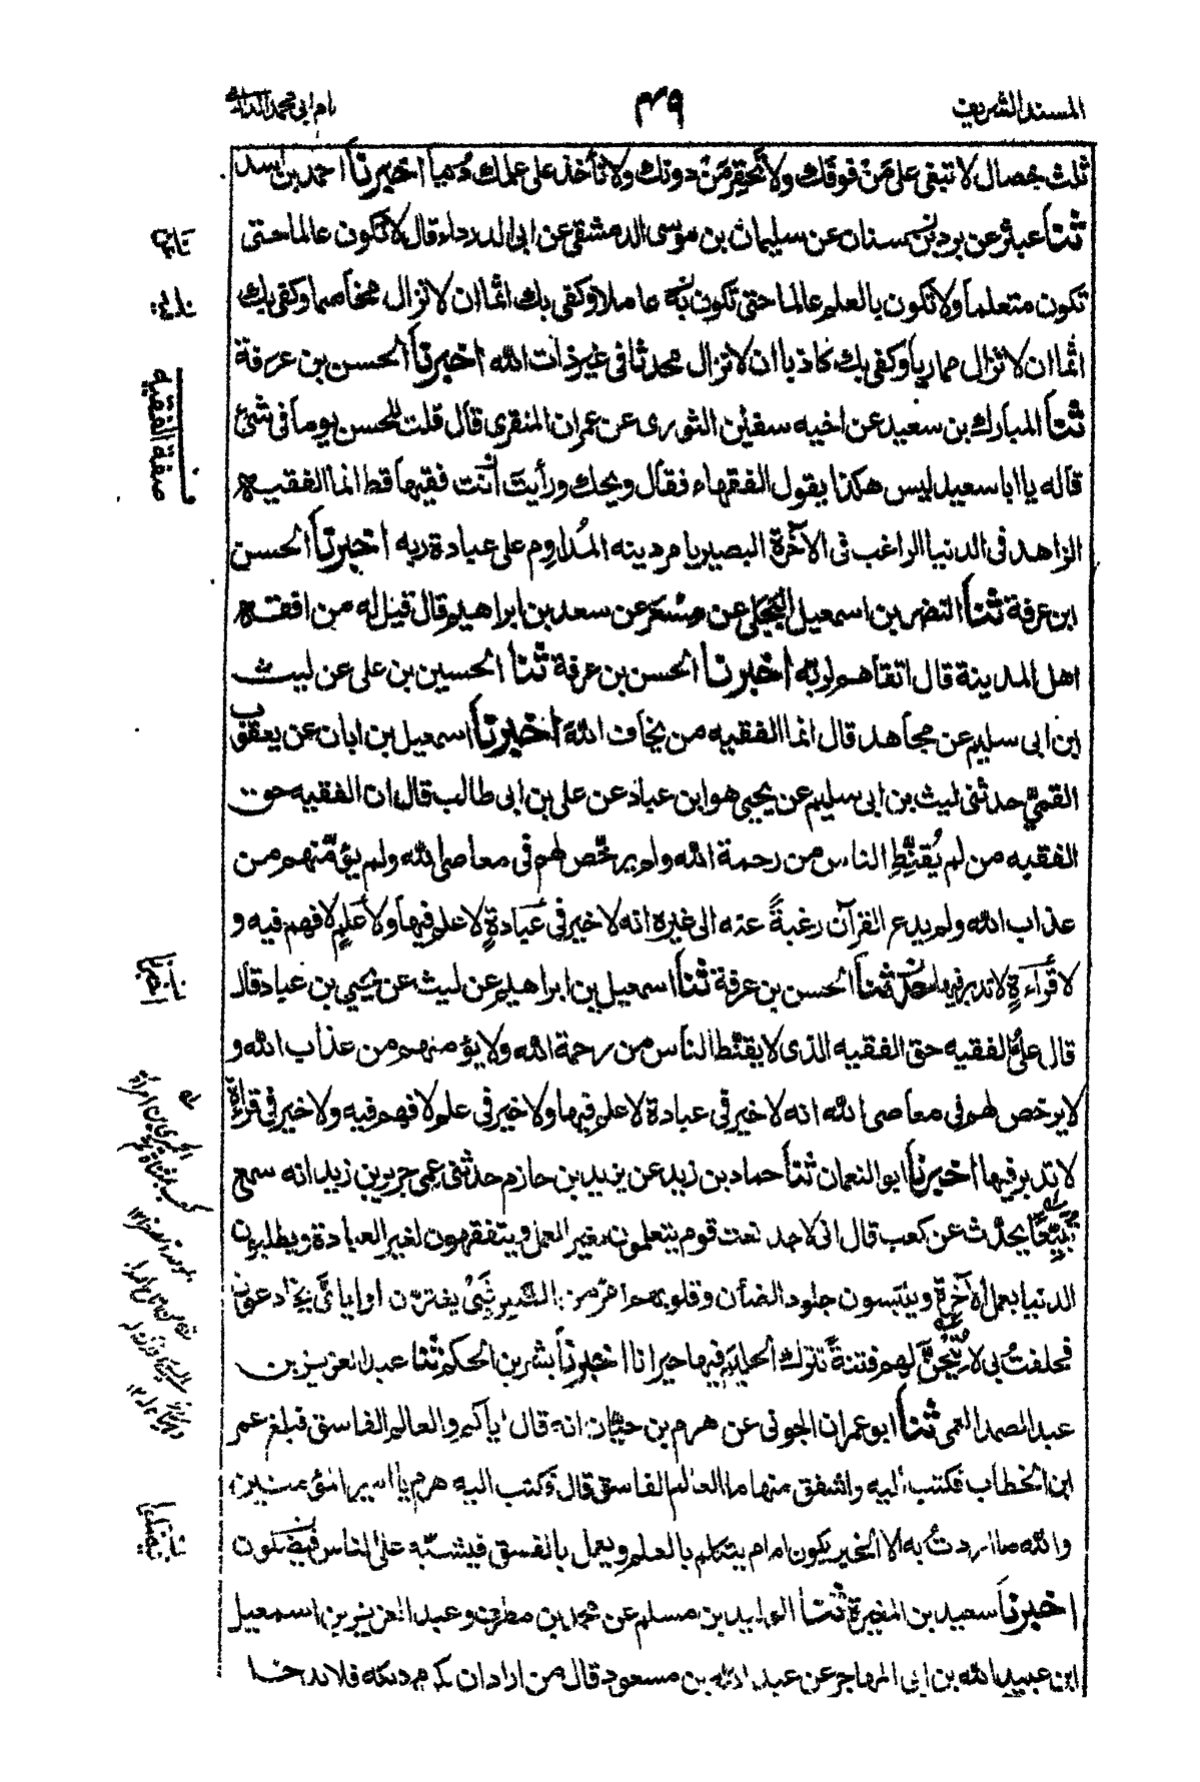 المسند الشريف
٤٩
ثلث خصال لا تبغى على مَنْ فوقك ولا تحقِر مَنْ دونك ولا تأخذ على علمك دُنيا اخبرنا احمد بن اسد
ثنا عبثر عن برد بن سنان عن سليمان بن موسى الدمشقى عن ابى الدرداء قال لا تكون عالما حتى
تكون متعلما ولا تكون بالعلم عالما حتى تكون به عاملا وكفى بك اثما ان لا تزال مخاصما وكفى بك
اثما ان لا تزال مماريا وكفى بك كاذبا ان لا تزال محدثا فى غير ذات الله اخبرنا الحسن بن عرفة
ثنا المبارك بن سعيد عن اخيه سفين الثورى عن عمران المنقرى قال قلت للحسن يوما فى شئ
قاله يا ابا سعيد ليس هكذا يقول الفقهاء فقال ويحك ورأيت أنت فقيها قط انما الفقيه
الزاهد فى الدنيا الراغب فى الآخرة البصير بامر دينه المُداوِم على عبادة ربه اخبرنا الحسن
ابن عرفة ثنا النضر بن اسمعيل البَجَلى عن مِسْعَر عن سعد بن ابراهيم قال قيل له من افقه
اهل المدينة قال اتقاهم لربه اخبرنا الحسن بن عرفة ثنا الحسين بن على عن ليث
ابن ابى سليم عن مجاهد قال انما الفقيه من يخاف الله اخبرنا اسمعيل بن ابان عن يعقوب
القمىّ حدثنى ليث بن ابى سليم عن يحيى هو ابن عباد عن على بن ابى طالب قال ان الفقيه حق
الفقيه من لم يُقنِّطِ الناس من رحمة الله ولم يرخّص لهم فى معاصى الله ولم يؤمّنهم من
عذاب الله ولم يدع القرآن رغبةً عنه الى غيره انه لا خير فى عبادةٍ لا علم فيها ولا علمٍ لا فهم فيه و
لا قراءةٍ لا تدبر فيها ثنا الحسن بن عرفة ثنا اسمعيل بن ابراهيم عن ليث عن يحيى بن عباد قال
قال علىّ الفقيه حق الفقيه الذى لا يقنّط الناس من رحمة الله ولا يؤمنهم من عذاب الله و
لا يرخص لهم فى معاصى الله انه لا خير فى عبادة لا علم فيها ولا خير فى علم لا فهم فيه ولا خير فى قراءة
لا تدبر فيها اخبرنا ابو النعمان ثنا حماد بن زيد عن يزيد بن حازم حدثنى عمى جرير بن زيد انه سمع
تُبَيْعًا يحدّث عن كعب قال انى لاجد نعت قوم يتعلمون لغير العمل ويتفقهون لغير العبادة ويطلبون
الدنيا بعمل الآخرة ويلبسون جلود الضأن وقلوبهم امرّ من الصَّبِر فبى يغترّون او اياىَ يخادعون
فحلفتُ بى لاُتيحنَّ لهم فتنةً تترك الحليم فيها حيرانا اخبرنا بشر بن الحكم ثنا عبد العزيز بن
عبد الصمد العمى ثنا ابو عمران الجونى عن هرم بن حيّان انه قال اياكم والعالم الفاسق فبلغ عمر
ابن الخطاب فكتب اليه واشفق منها ما العالم الفاسق قال فكتب اليه هرم يا امير المؤمنين
والله ما اردت به الا الخير يكون امام يتكلم بالعلم ويعمل بالفسق فيشبّه على الناس فيضلون
اخبرنا سعيد بن المغيرة ثنا الوليد بن مسلم عن محمد بن مطرف وعبد العزيز بن اسمعيل
ابن عبيد الله بن ابى المهاجر عن عبد الله بن مسعود قال من اراد ان يكرم دينه فلا يدخل
صفة الفقيه